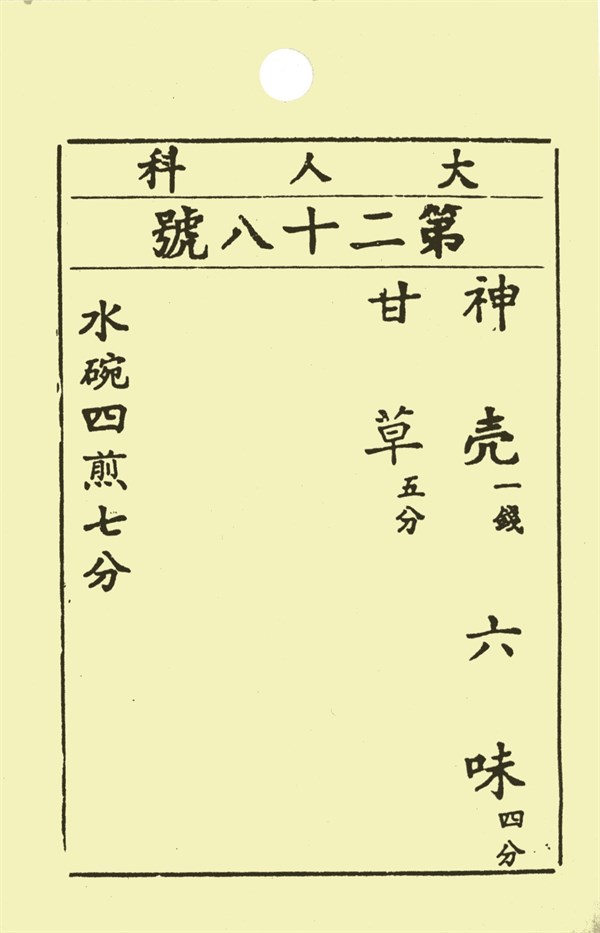 大人科
第二十八號
神壳一錢 六味四分
甘草五分
水碗四煎七分